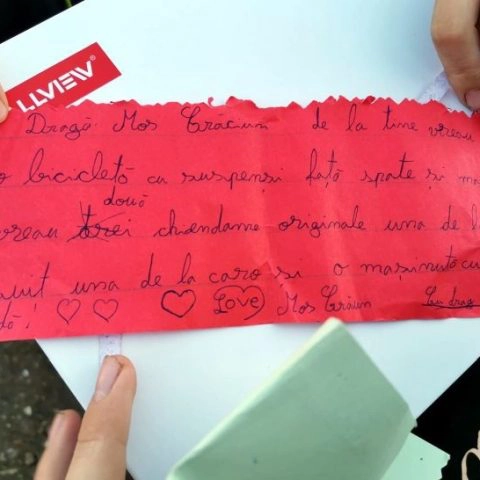 LLVIEW®
Dragă Moș Crăciun de la tine vreau
o bicicletă cu suspensi față spate și mai
două
vreau trei chiendame originale una de la
una de la caro si o mașinuță cu
Love Moș Crăiun Cu drag